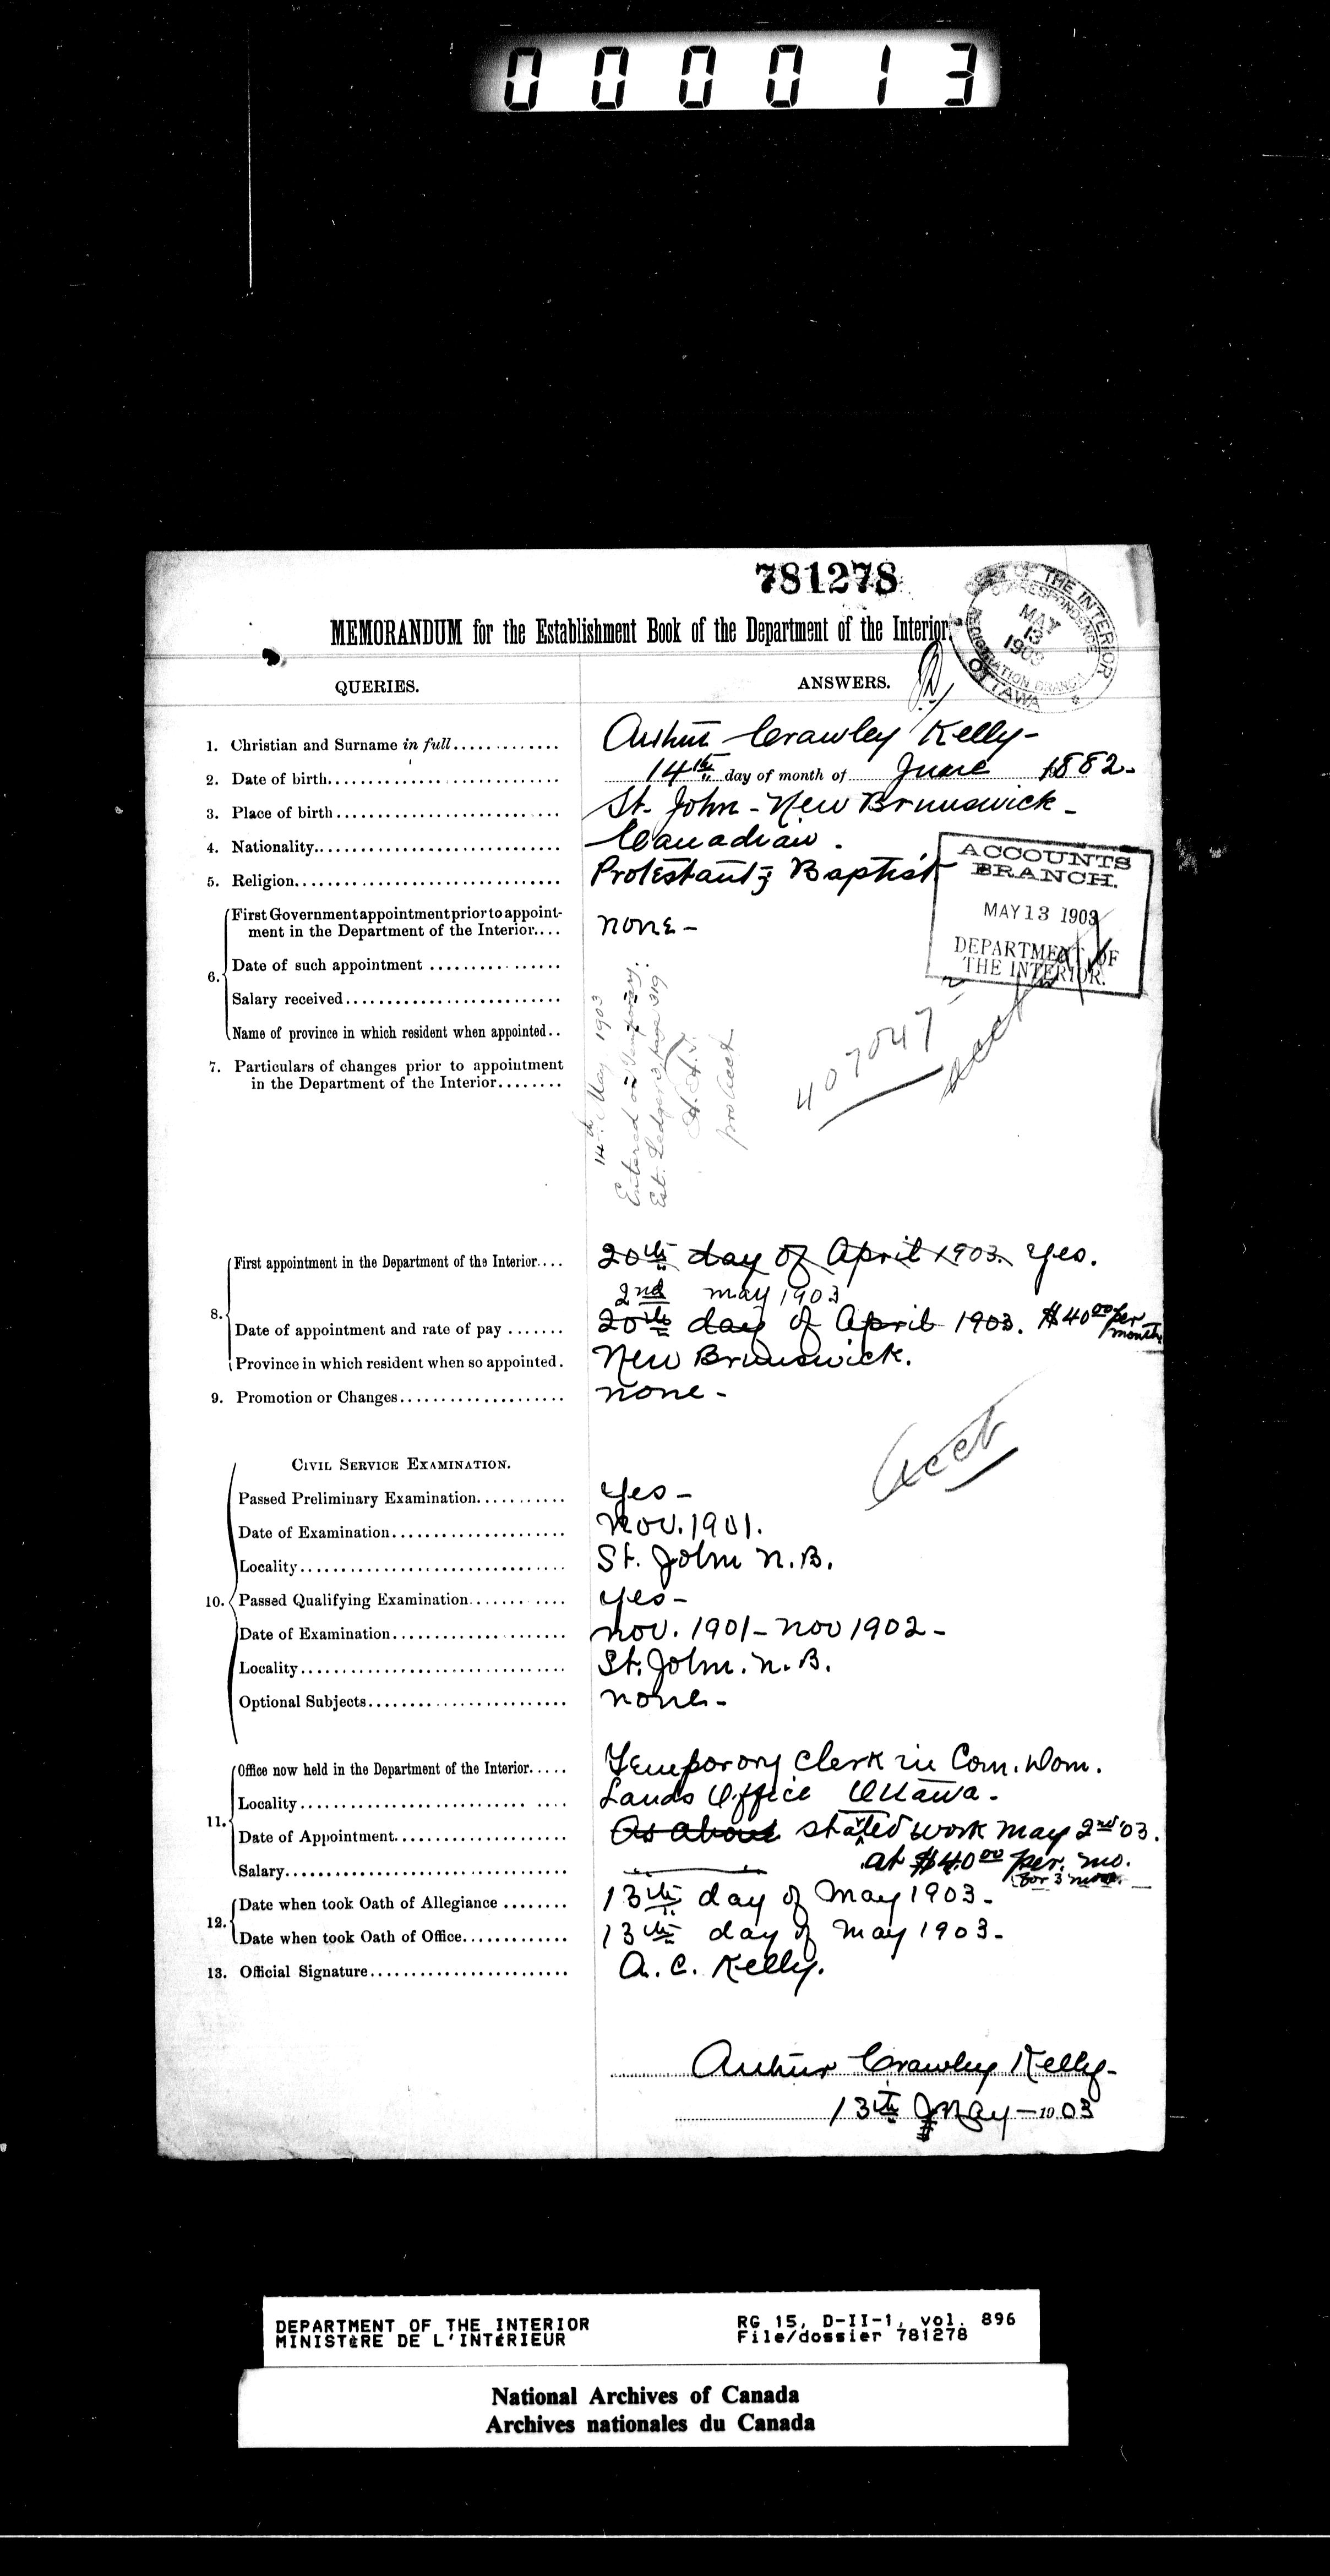 000013
781278
DEPT. OF THE INTERIOR
CORRESPONDENCE
MAY
13
1903
REGISTRATION BRANCH
OTTAWA
MEMORANDUM for the Establishment Book of the Department of the Interior.
QUERIES. ANSWERS.
1. Christian and Surname in full Arthur Crawley Kelly-
2. Date of birth 14th day of month of June 1882-
3. Place of birth St. John - New Brunswick -
4. Nationality Canadian.
5. Religion Protestant; Baptist
ACCOUNTS
BRANCH.
MAY 13 1903
DEPARTMENT OF
THE INTERIOR.
6. First Government appointment prior to appoint-
ment in the Department of the Interior none -
Date of such appointment
Salary received
Name of province in which resident when appointed
7. Particulars of changes prior to appointment
in the Department of the Interior
14th May, 1903
Entered on Temporary.
Est. Ledger 3, page 319
pro acct
407047
acct
8. First appointment in the Department of the Interior 20th day of April 1903. Yes.
2nd May 1903
Date of appointment and rate of pay 20th day of April 1903. $40 00 per month
Province in which resident when so appointed. New Brunswick.
9. Promotion or Changes none -
acct
CIVIL SERVICE EXAMINATION.
10. Passed Preliminary Examination yes -
Date of Examination Nov. 1901.
Locality St. John N.B.
Passed Qualifying Examination yes -
Date of Examination Nov. 1901 - Nov 1902 -
Locality St. John. N.B.
Optional Subjects none -
11. Office now held in the Department of the Interior Temporory Clerk in Com. Dom.
Locality Lands Office Ottawa -
Date of Appointment As above stated work May 2nd '03.
Salary at $40 00 per. mo.
for 3 mos.
12. Date when took Oath of Allegiance 13th day of May 1903 -
Date when took Oath of Office 13th day of May 1903 -
13. Official Signature A. C. Kelly.
Arthur Crawley Kelly-
13th May - 1903
DEPARTMENT OF THE INTERIOR RG 15, D-II-1, vol. 896
MINISTÈRE DE L'INTÉRIEUR File/dossier 781278
National Archives of Canada
Archives nationales du Canada